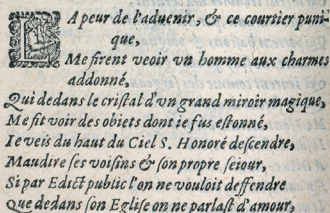 LA peur de l'aduenir, & ce courtier puni-
que,
Me firent veoir vn homme aux charmes
addonné,
Qui dedans le cristal d'vn grand miroir magique,
Me fit voir des objets dont ie fus estonné,
Ie veis du haut du Ciel S. Honoré descendre,
Maudire ses voisins & son propre seiour,
Si par Edict public l'on ne vouloit deffendre
Que dedans son Eglise on ne parlast d'amour,